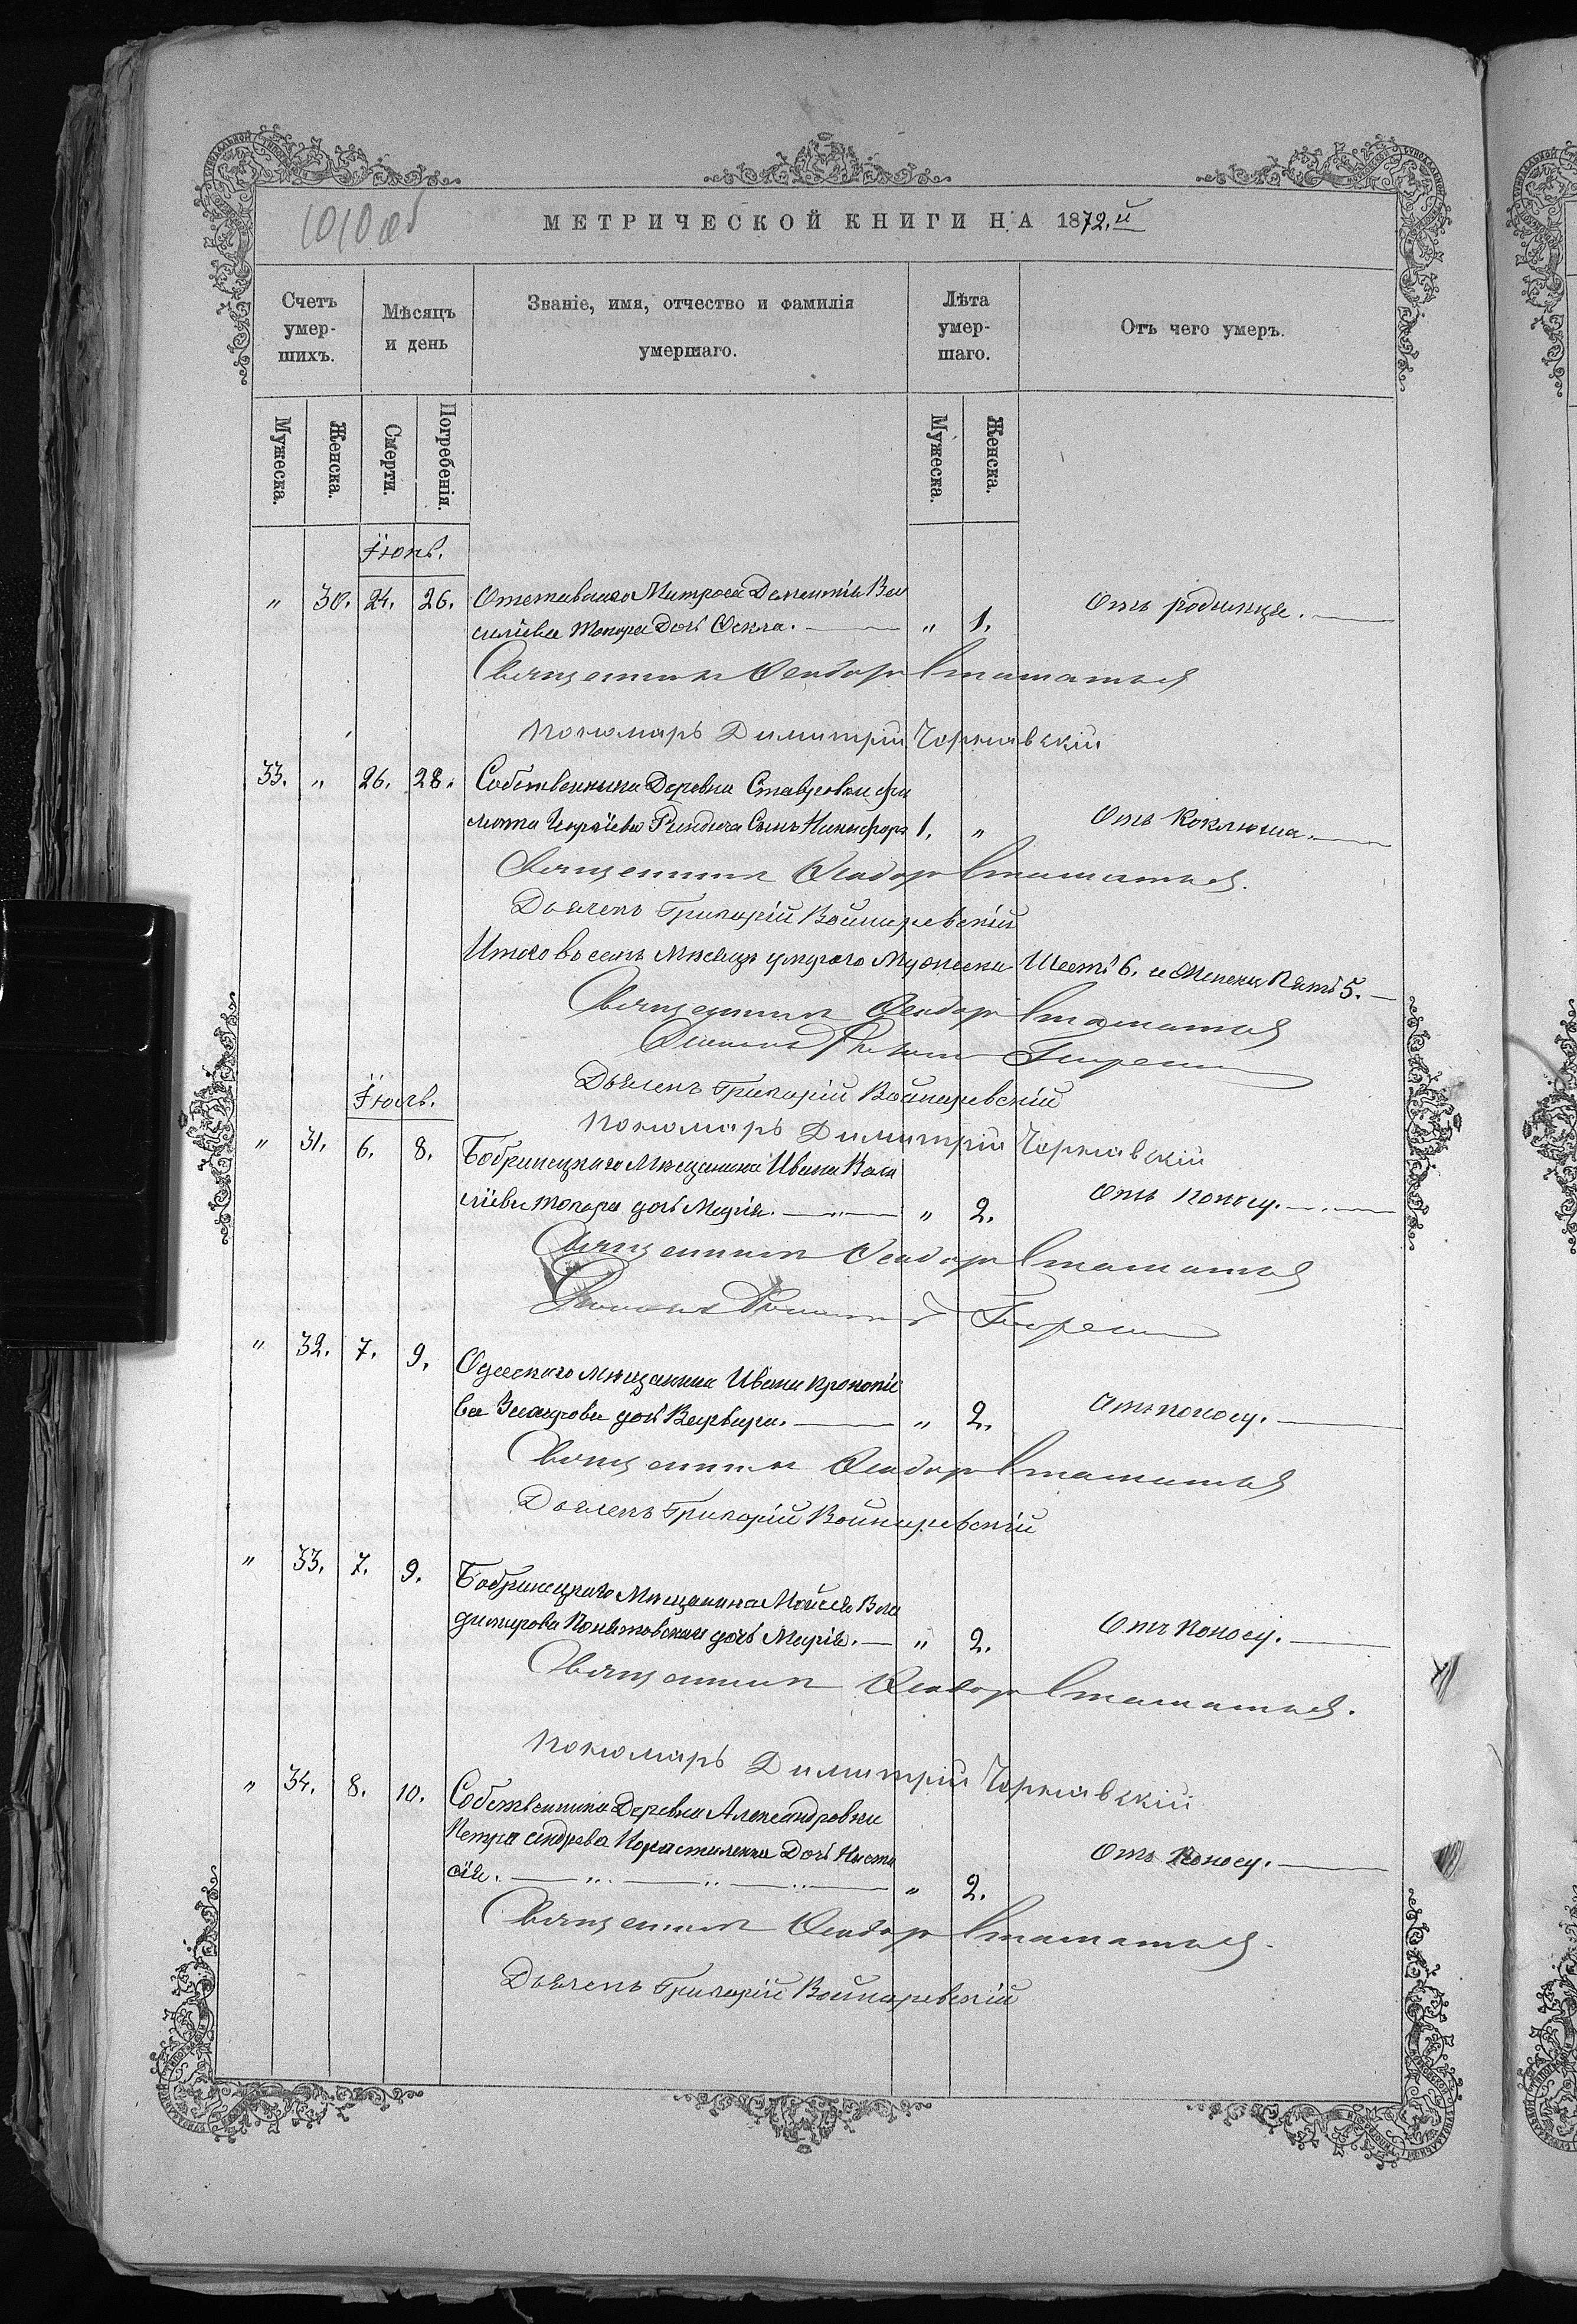 1010 об
МЕТРИЧЕСКОЙ КНИГИ НА 1872.й
Счетъ умер-шихъ.
Мѣсяцъ и день
Званіе, имя, отчество и фамилія умершаго.
Лѣта умер-шаго.
Отъ чего умеръ.
Мужеска.
Женска.
Смерти.
Погребенія.
Мужеска.
Женска.
Іюнь.
" 30. 24. 26. Отставнаго Матроса Дементія Ва
силіева Токаря дочь Фекла. " 1. Отъ родимца.
Священникъ Ѳеодоръ Стаматьевъ
Пономарь Димитрій Чернявскій
33. " 26. 28. Собственника Деревни Ставровки Фи
липпа Сынъ Никифоръ 1. " Отъ Коклюша.
Священникъ Ѳеодоръ Стаматьевъ.
Дьячекъ Григорій Войнаревскій
Итого во семъ мѣсяцѣ умерло Мужеска Шесть 6. и Женска Пять 5.
Священникъ Ѳеодоръ Стаматьевъ
Дьячекъ Григорій Войнаревскій
Іюль.
Пономарь Димитрій Чернявскій
" 31. 6. 8. Бобринецкаго Мѣщанина Ивана Васи
ліева Токаря дочь Марія. " 2. Отъ поносу.
Священникъ Ѳеодоръ Стаматьевъ
" 32. 7. 9. Одесскаго Мѣщанина Ивана Прокопіе
ва дочь Варвара. " 2. Отъ поносу.
Священникъ Ѳеодоръ Стаматьевъ
Дьячекъ Григорій Войнаревскій
" 33. 7. 9. Бобринецкаго Мѣщанина Мойсея Вла
димирова Понятовскаго дочь Марія. " 2. Отъ поносу.
Священникъ Ѳеодоръ Стаматьевъ.
Пономарь Димитрій Чернявскій
" 34. 8. 10. Собственника Деревни Александровки
Петра Андреева Коростиленка Дочь Наста
сія. " 2. Отъ Поносу.
Священникъ Ѳеодоръ Стаматьевъ.
Дьячекъ Григорій Войнаревскій